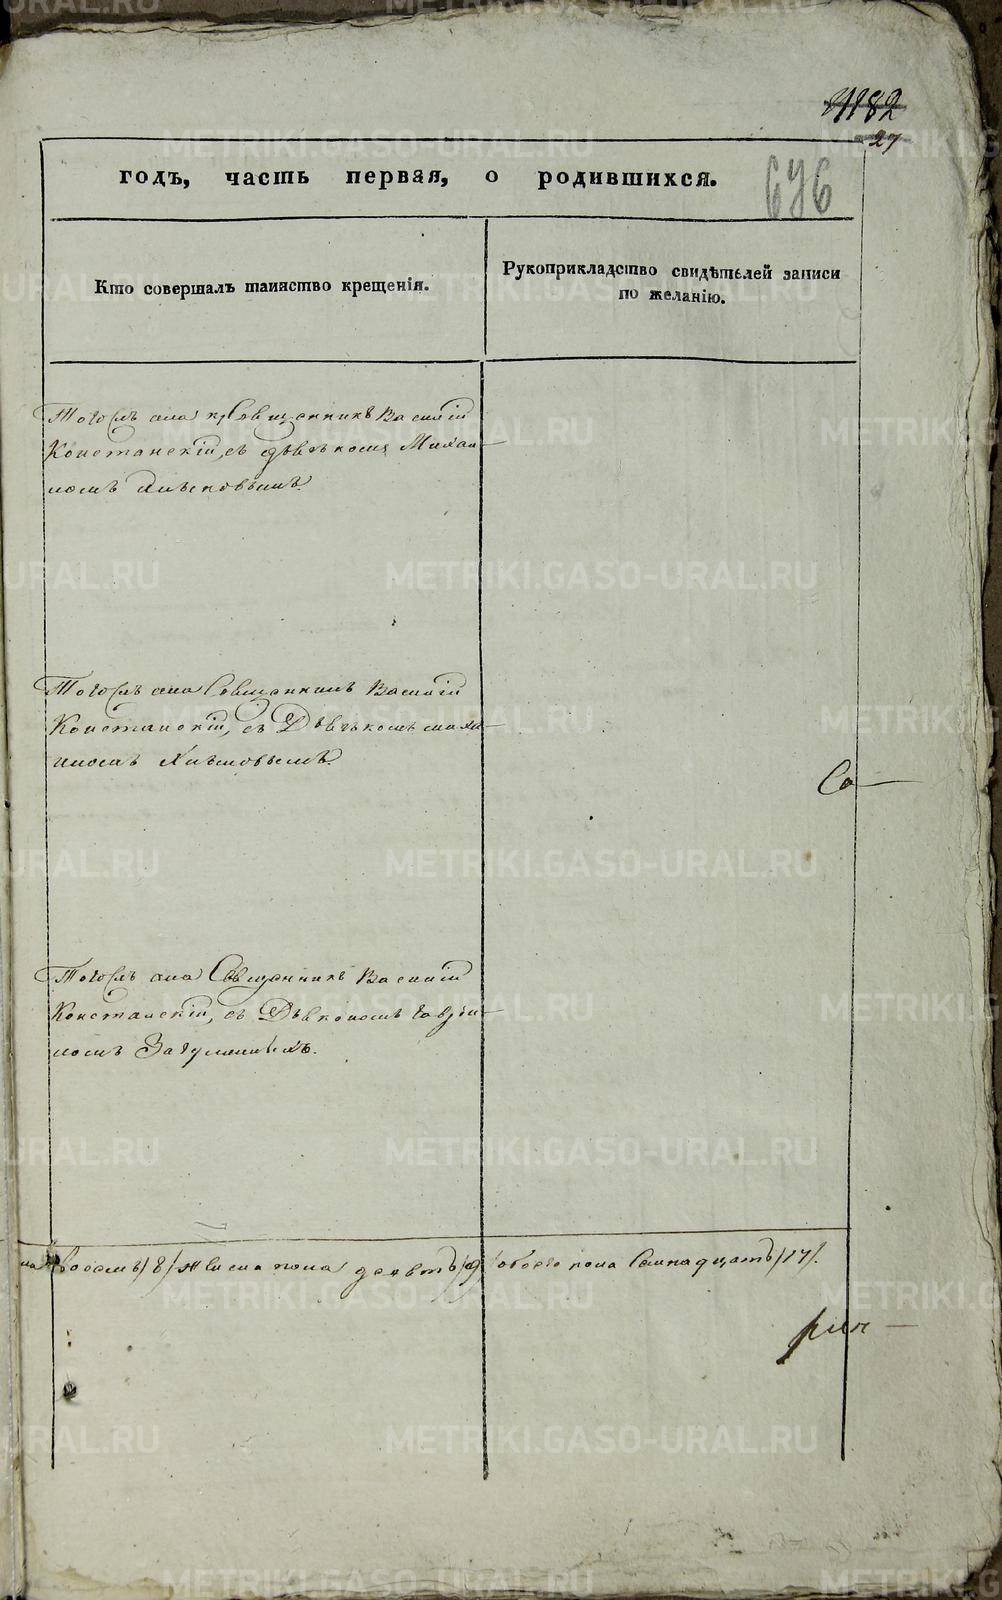 1182
27
годъ, часть первая, о родившихся.
676
Кто совершалъ таинство крещенія.
Рукоприкладство свидѣтелей записи
по желанію.
Тогожъ села Священникъ Василій
Констанскій, съ дьячкомъ Михаи
ломъ
Тогожъ села Священникъ Василій
Констанскій, съ Дьячкомъ михаи
ломъ
Со
Тогожъ села Священникъ Василій
Констанскій, съ Дьякономъ Гаврiи
ломъ
восемь /8/ женска пола девять /9/ обоего пола Семнадцать /17/.